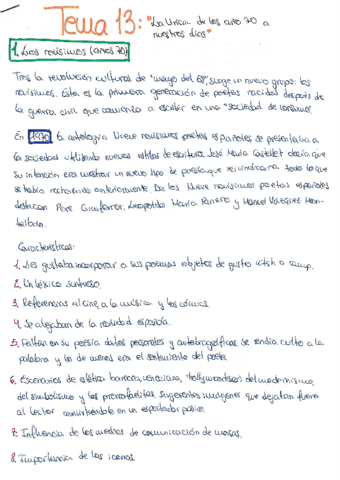 Tema 13: "La lírica de los años 70 a
nuestros días"
1. Los novísimos (años 70)
Tras la revolución cultural de "mayo del 68", surge un nuevo grupo: los
novísimos. Esta es la primera generación de poetas nacidos después de
la guerra civil que comienza a escribir en una "sociedad de consumo".
En 1970 la antología Nueve novísimos poetas españoles se presentaba a
la sociedad utilizando nuevos estilos de escritura. José María Castellet decía que
su intención era mostrar un nuevo tipo de poesía que reivindicara todo lo que
se había rechazado anteriormente. De los Nueve novísimos poetas españoles
destacan Pere Gimferrer, Leopoldo María Panero y Manuel Vázquez Mon-
talbán.
Características:
1. Les gustaba incorporar a sus poemas objetos de gusto kitsh o camp.
2. Un léxico suntuoso.
3. Referencias al cine, a la música y los cómics.
4. Se alejaban de la realidad española.
5. Faltan en su poesía datos personales y autobiográficos. Se rendía culto a la
palabra y lo de menos era el sentimiento del poeta.
6. Escenarios de estética barroca, veneciana, "hollywoodiense" del modernismo,
del simbolismo y los prerrafaelitas. Sugerentes imágenes que dejaban fuera
al lector convirtiéndolo en un espectador pasivo.
7. Influencia de los medios de comunicación de masas.
8. Importancia de los iconos.